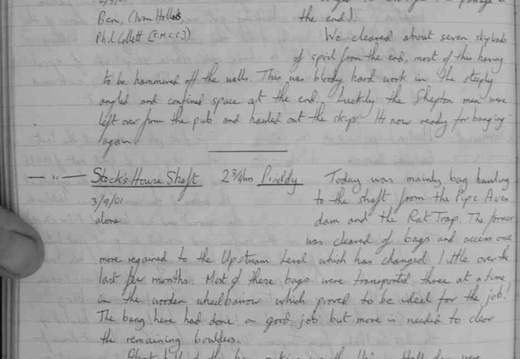 Ben, Clive Hollis,
Phil Collett (S.M.C.C.)
the end).
We cleared about seven skiploads
of spoil from the end, most of this having
to be hammered off the walls. This was bloody hard work in the steeply
angled and confined space at the end. Luckily the Shepton men were
left over from the pub and hauled out the skips. It's now ready for banging
again.
Stock's House Shaft 2¾hrs Priddy Today was mainly bag hauling
3/9/01 to the shaft from the Pipe Aven
alone dam and the Rat Trap. The former
was cleared of bags and access once
more regained to the Upstream Level which has changed little over the
last few months. Most of these bags were transported three at a time
in the wooden wheelbarrow which proved to be ideal for the job!
The bang here had done a good job but more is needed to clear
the remaining boulders.
About half of the